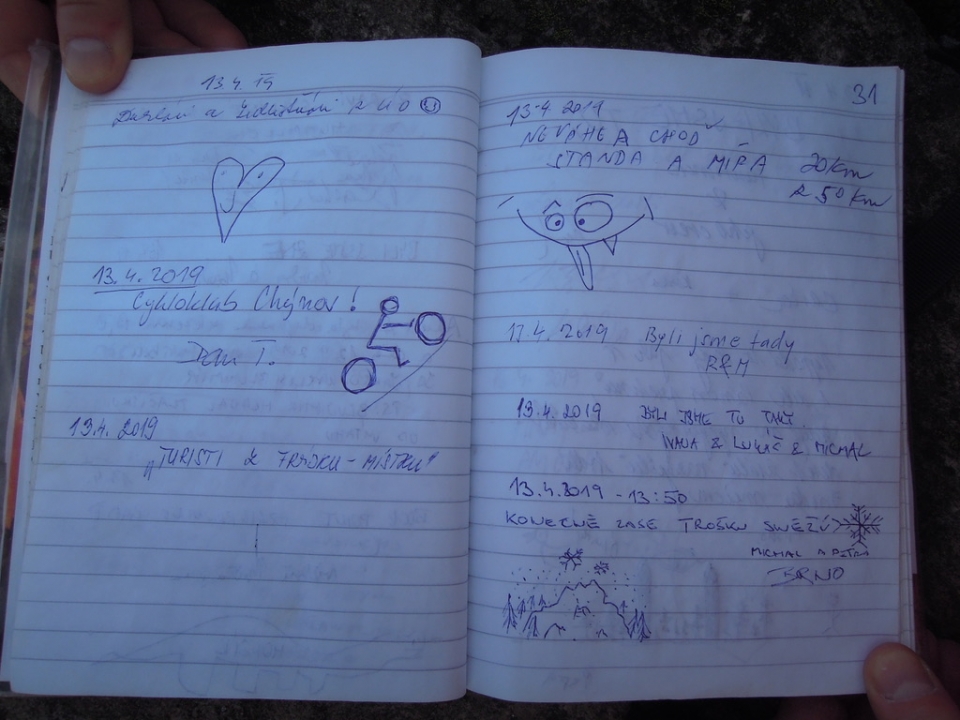 13.4. 19
a
13.4.2019
Cykloklub Chýnov!
Dan T.
13.4. 2019
„TURISTI Z FRÝDKU-MÍSTKU“
31
13.4 2019
NEVÁHEJ A CHOĎ
STANDA A MÍRA 20km
Z 50km
13.4. 2019 Byli jsme tady
R&M
13.4. 2019 BYLI JSME TU TAKY
IVANA & LUKÁŠ & MICHAL
13.4.2019 - 13:50
KONEČNĚ ZASE TROŠKU SNĚŽÍ
MICHAL A PETRA
BRNO